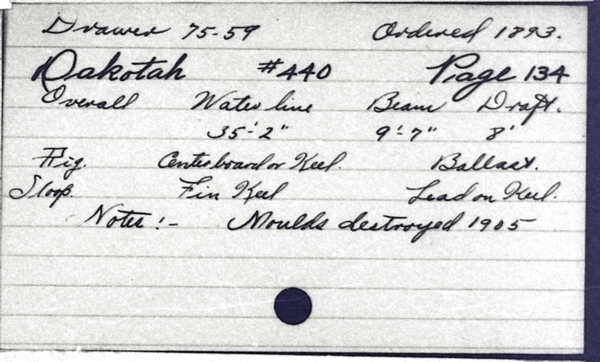 Drawer 75-59 Ordered 1893.
Dakotah #440 Page 134
Overall Water line Beam Draft.
35'-2" 9'-7" 8'
Rig. Centerboard or Keel. Ballast.
Sloop. Fin Keel Lead on Keel.
Notes:- Moulds destroyed 1905